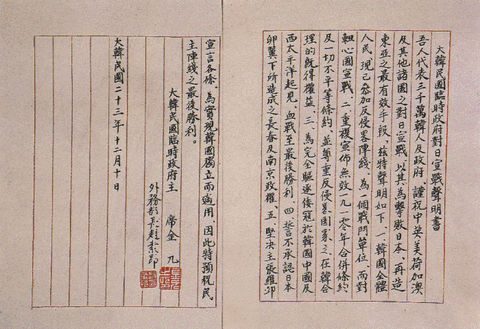 大韓民國臨時政府對日宣戰聲明書
吾人代表三千萬韓人及政府、謹祝中英美荷加澳
及其他諸國之對日宣戰、以其為擊敗日本、再造
東亞之最有效手段、玆特聲明如下、一韓國全體
人民、現已參加反侵畧陣綫、為一個戰鬥單位、而對
軸心國宣戰、二、重複宣佈無效一九一零年合併條約、
及一切不平等條約、並尊重反侵畧國家之在韓合
理的既得權益、三、為完全驅逐倭寇於韓國中國及
西太平洋起見、血戰至最後勝利、四、誓不承認日本
卵翼下所造成之長春及南京政權、五、堅決主張羅卯
宣言各條、為實現韓國獨立而適用、因此特預祝民
主陣綫之最後勝利。
大韓民國臨時政府主 席金 九
外務部長趙素昂
大韓民國二十三年十二月十日